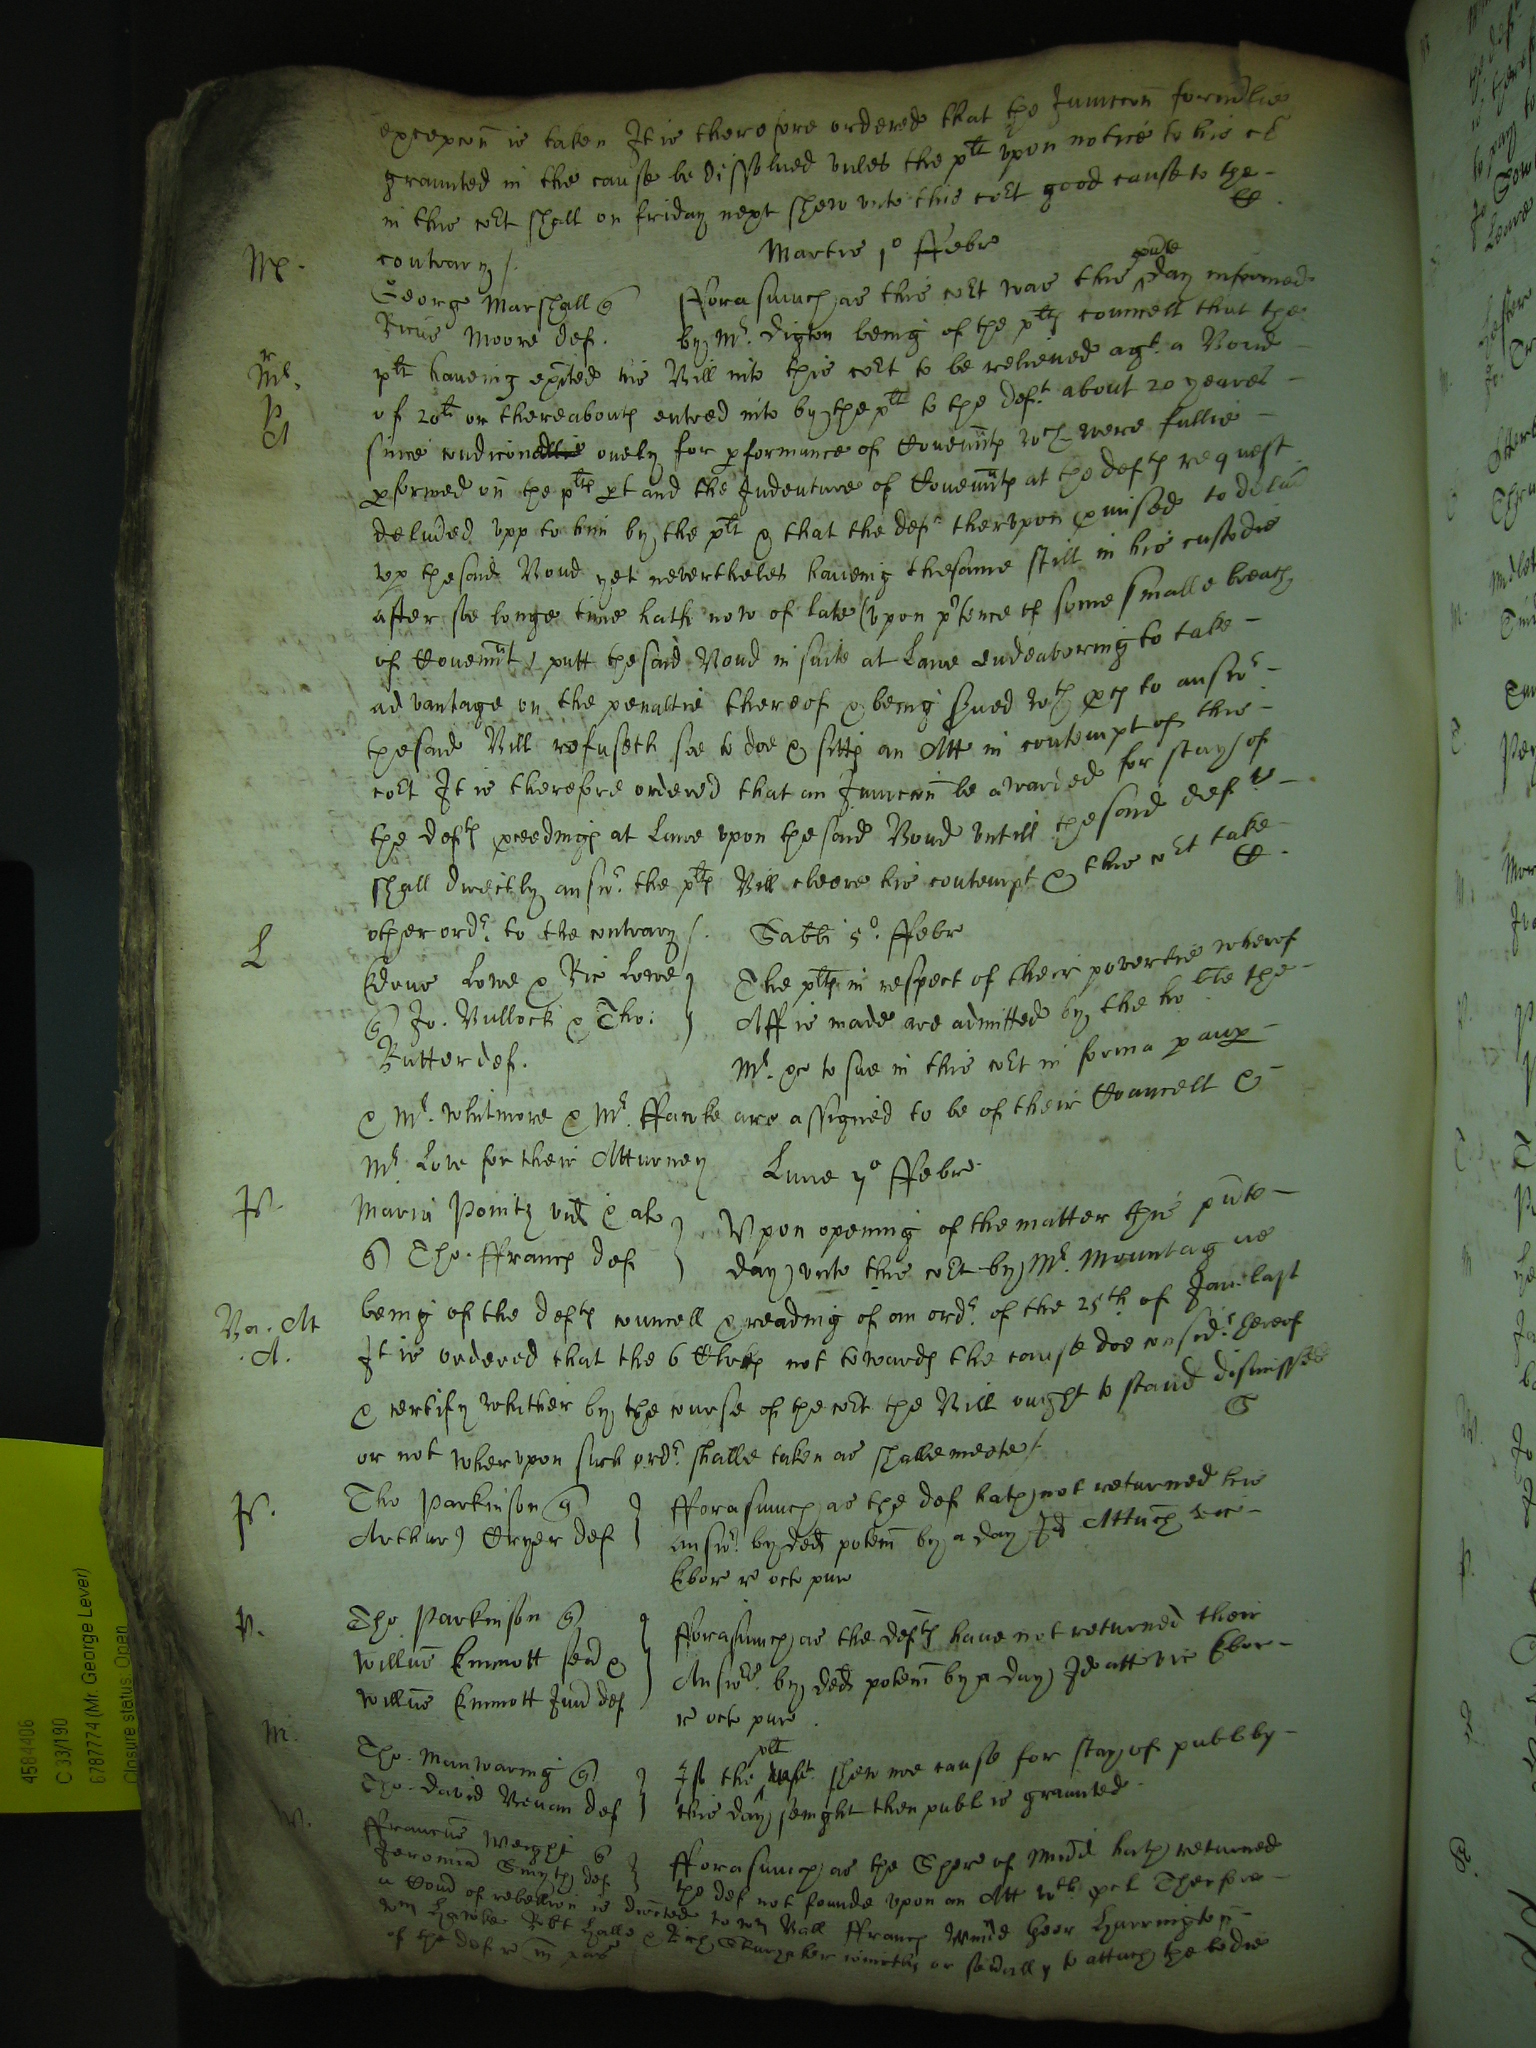 excepcon is taken It is therefore ordered that the Iniunccon formerlie
graunted in the cause be dissolued vnles the plt vpon notice to his cl
in this cort shall on friday next shew vnto this cort good cause to the
contrary /.
Martis 1o ffebr
George Marshall q
Ricus Moore def.
fforasmuch as this cort was this pnte day informed
by Mr. Digton being of the plts councell that the
plt haueing exhited his Bill into this cort to be relieued agt. a Bond
of 20li or thereabouts entred into by the plt to the deft. about 20 yeares
since condicon onely for pformance of Couennts wch were fullie
pformed on the plts pt and the Indenture of Couennts at the defts request
deliued vpp to him by the plt & that the deft therupon pmised to deliu
vp thesaid Bond yet neuertheles haueing thesame still in his custodie
after soe longe time hath now of late (vpon ptence of some smalle breach
of Couennt) putt thesaid Bond in suite at Lawe endeavoring to take
advantage on the penaltie thereof & being serued wth pces to answr.
thesaid Bill refuseth soe to doe & sitts an Att in contempt of this
cort It is therefore ordered that an Iniunccon be awarded for stay of
the defts pceedings at Lawe vpon thesaid Bond vntill thesaid deft
shall directly answr. the plts Bill cleere his contempt & this cort take
other ordr. to the contrary /.
Sabbi 5o. ffebr
L
Edrus Lowe & Ric Lowe
q Jo. Bullock & Tho:
Rutter def.
The plts in respect of their povertie wherof
Aff is made are admitted by the hoble the
Mr. &c to sue in this cort in forma paup
& Mr. Whitmore & Mr. ffawke are assigned to be of their Councell &
Mr. Lowe for their Atturney
Lune 7o ffebr
Maria Pointz vid & al
q Tho. ffranch def
Vpon opening of the matter this pnte
day vnto this cort by Mr. Mountague
being of the defts councell & reading of an ordr. of the 25th of Jan. last
Ba. At
.A.
It is ordered that the 6 Clerks not towards the cause doe considr. hereof
& certify whither by the course of the cort the Bill ought to stand dismissed
or not wherupon such ordr. shalbe taken as shalbe meete /
Tho Parkinson q
Arthur Cryer def
fforasmuch as the def hath not returned his
answr. by ded potem by a day Id Attach vic
Ebor r octo pur
Tho. Parkinson q
Willus Emmott sen &
Willus Emmott Jun def
fforasmuch as the defts haue not returned their
Answrs. by ded potem by a day Id att vic Ebor
r octo pur.
M.
Tho. Manwaring q
Tho. David Bevan def
If the plt shew noe cause for stay of publ by
this day senight then publ is graunted.
ffrancus Wright q
Jeromia Smyth def
fforasmuch as the Shere of Midd hath returned
the def not founde vpon an Att wth pcl Therfore
a Comd of rebellion is directed to Wm Ball ffranch Wind Geor Harrington
Wm Hawke Robt Halle & Rich coniuctly or seually to attach the bodie
of the def r
4584406
C 33/190
6787774 (Mr. George Lever)
Closure status: Open